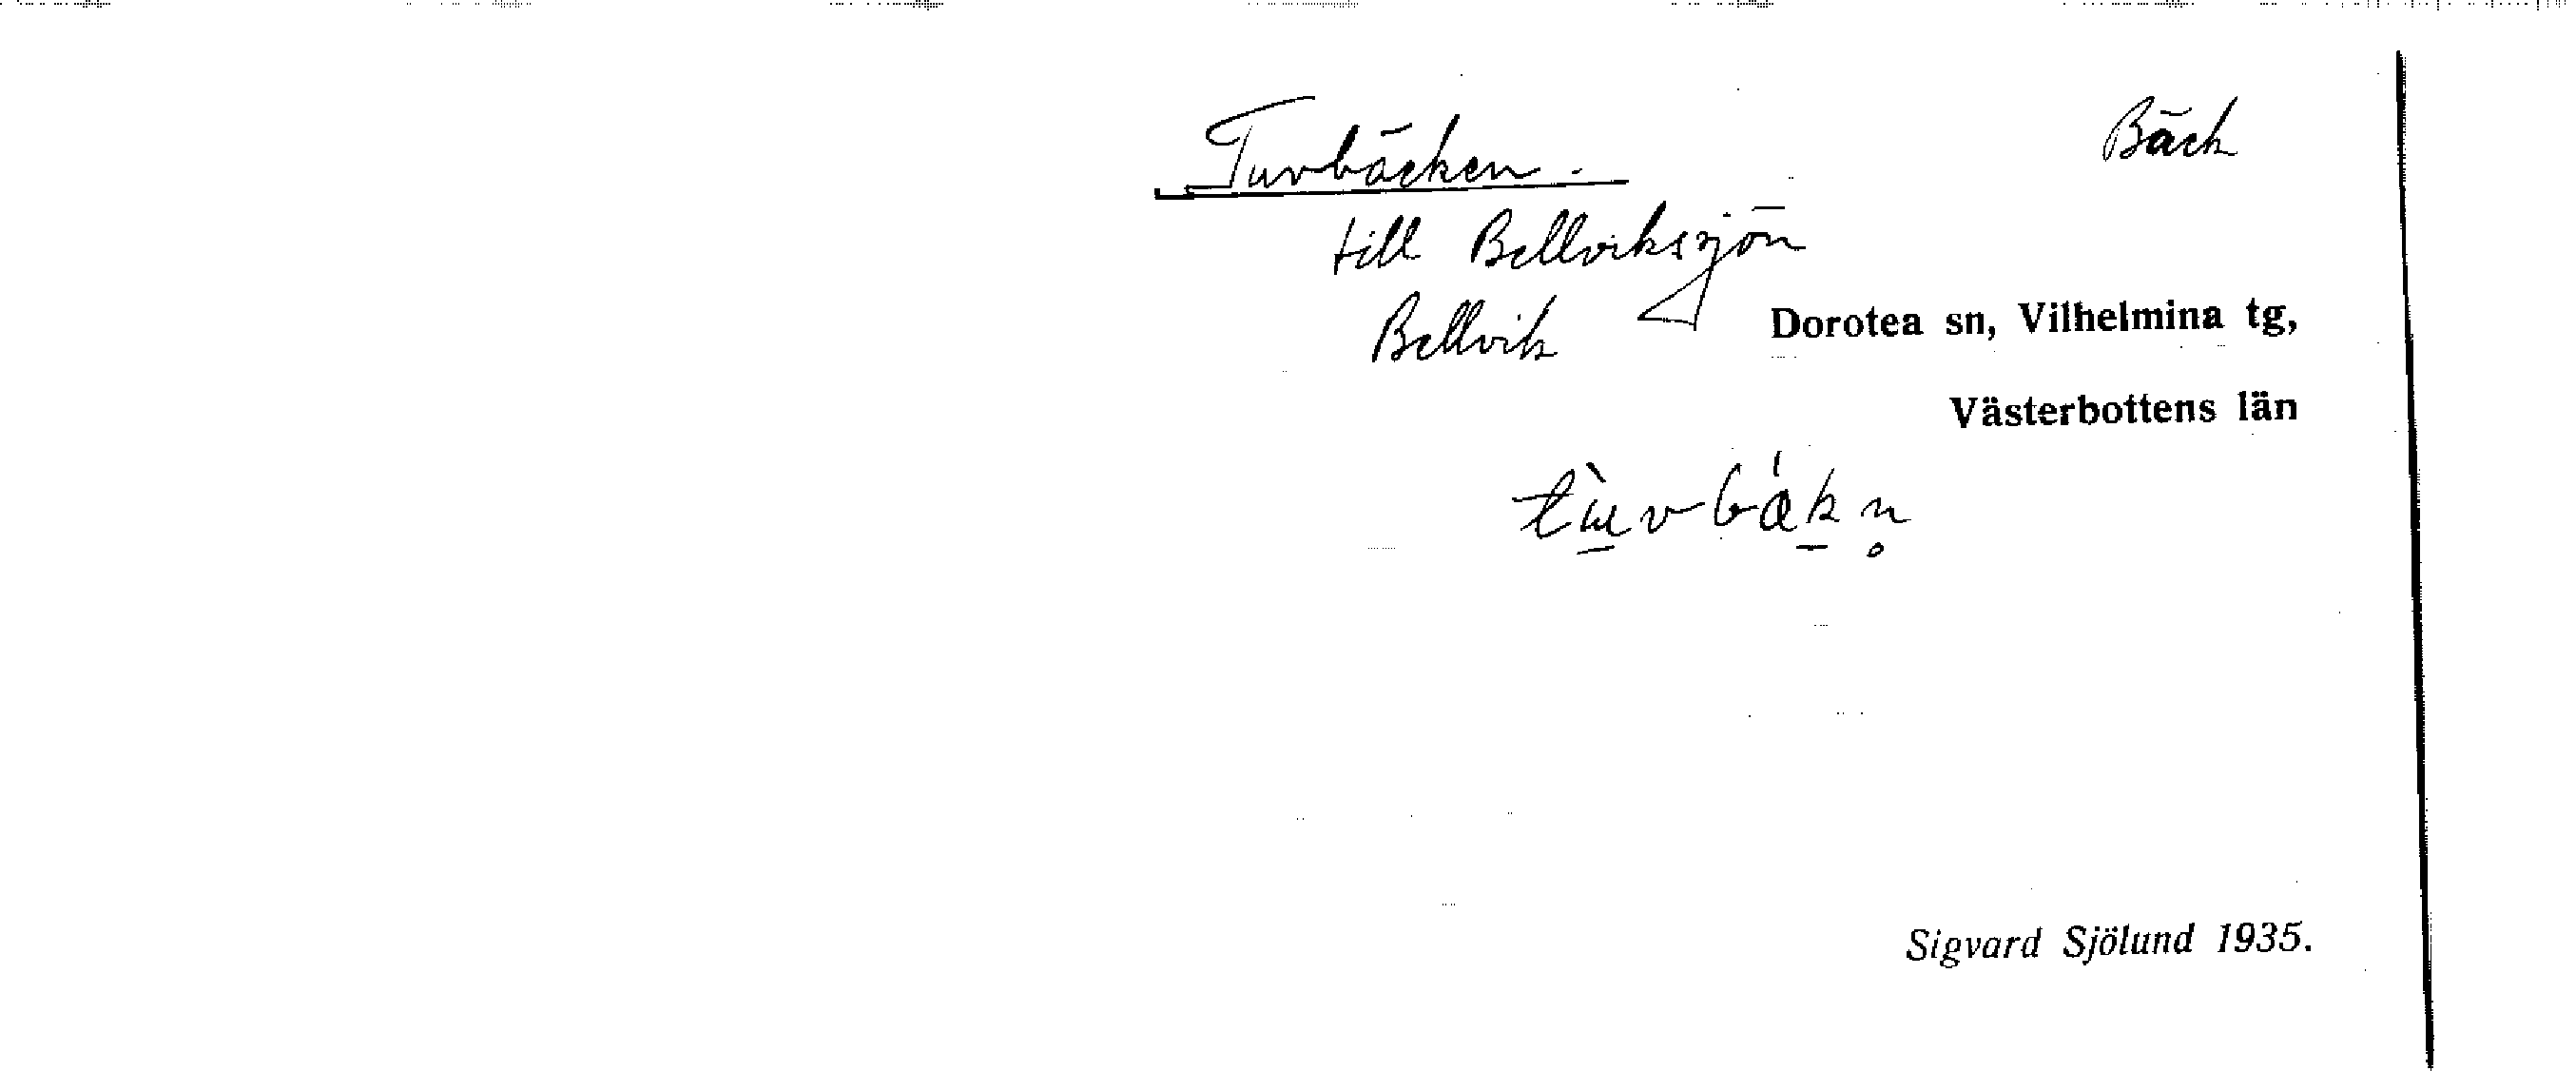 Turbäcken.
Bäck
till Bellviksjön
Bellvik
Dorotea sn, Vilhelmina tg,
Västerbottens län
Sigvard Sjölund 1935.